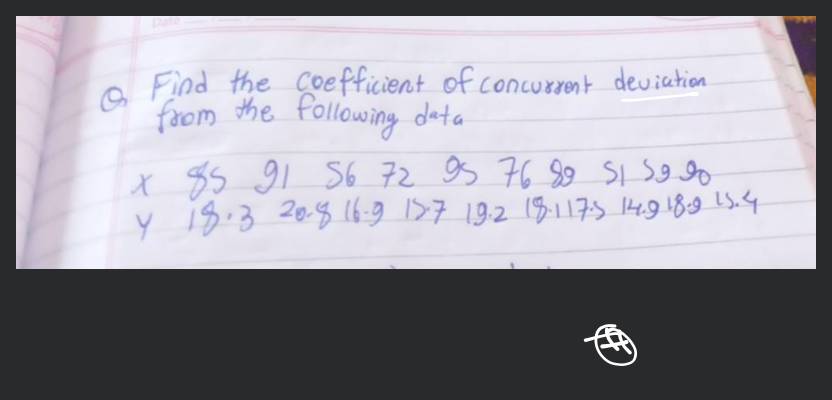 Date
Q Find the coefficient of concurrent deviation
from the following data
X 85 91 56 72 95 76 89 51 59 90
Y 18.3 20.8 16.9 15.7 19.2 18.1 17.5 14.9 18.9 15.4